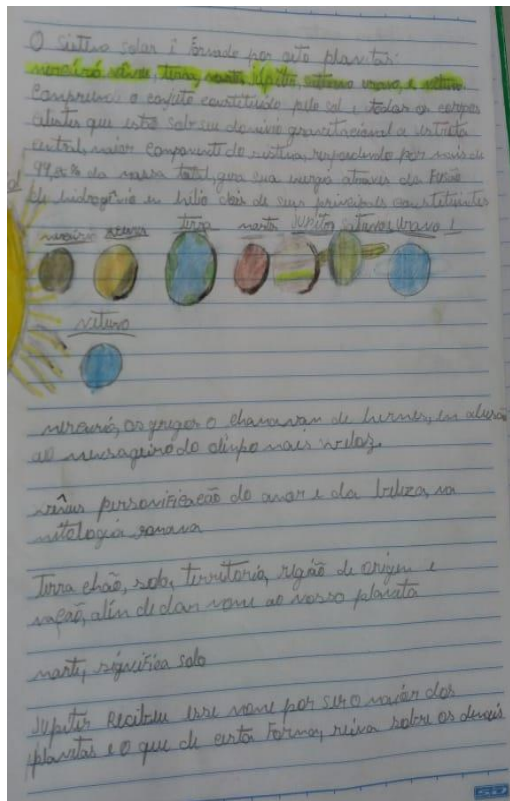 O sistema solar é formado por oito planetas:
mercúrio, vênus, terra, marte, júpiter, saturno urano, e netuno.
Compreende o conjunto constituído pelo sol e todos os corpos
celestes que estão sob seu domínio gravitacional a estrela
central, maior componente do sistema, respondendo por mais de
99,85% da massa total, gera sua energia através da Fusão
de hidrogênio em hélio dois de seus principais constituintes
mercúrio vênus terra marte Jupiter saturno urano
netuno
mercúrio, os gregos o chamavam de hermes, em alusão
ao mensageiro do olimpo mais veloz.
vênus personificação do amor e da beleza, na
mitologia romana
Terra chão, solo, território, região de origem e
nação, alin de dar nome ao nosso planeta
marte, significa solo
Jupiter Recebeu esse nome por ser o maior dos
planetas e o que de certa Forma, reina sobre os demais